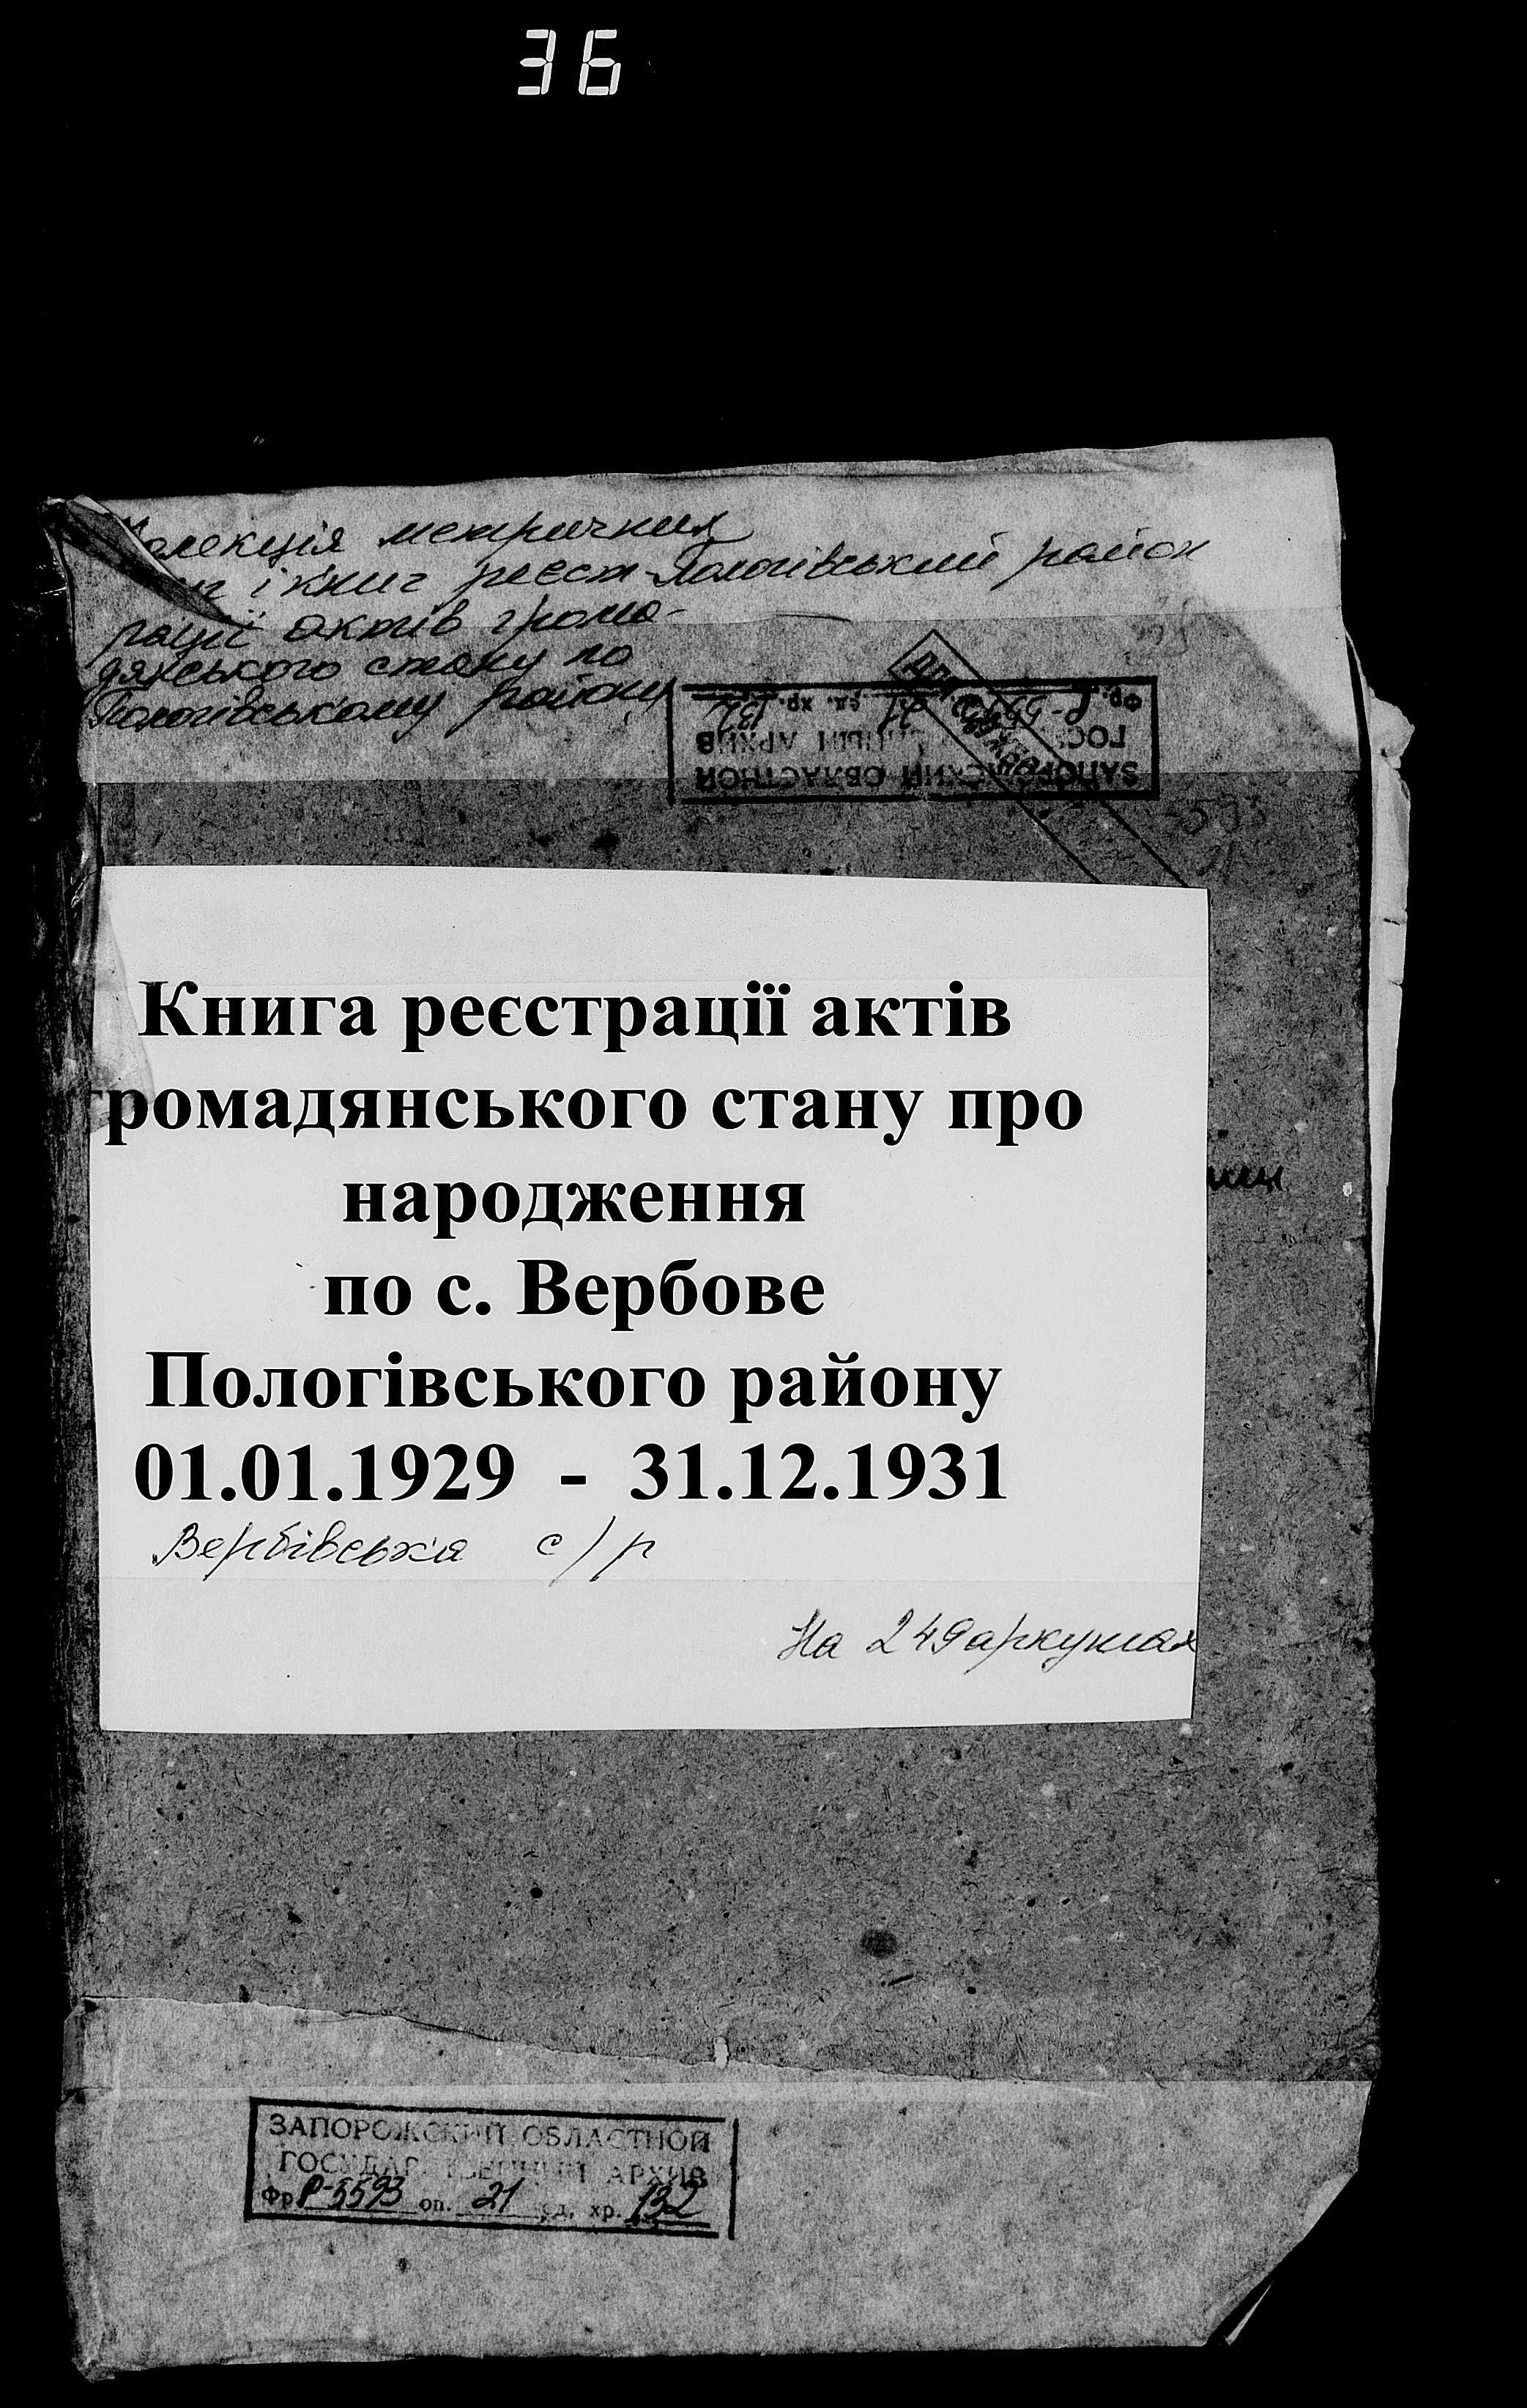 36
олекція метричних
і книг реєст- Пологівський район
рації актів грома-
дянського стану по
Пологівському району
ЗАПОРОЖСКИЙ ОБЛАСТНОЙ
АРХИВ
Фр. Р-5593 21 ед. хр. 132
Книга реєстрації актів
громадянського стану про
народження
по с. Вербове
Пологівського району
01.01.1929 - 31.12.1931
Вербівська с/р
На 249 аркушах
ЗАПОРОЖСКИЙ ОБЛАСТНОЙ
ГОСУДАРСТВЕННЫЙ АРХИВ
Фр Р-5593 оп. 21 ед. хр. 132